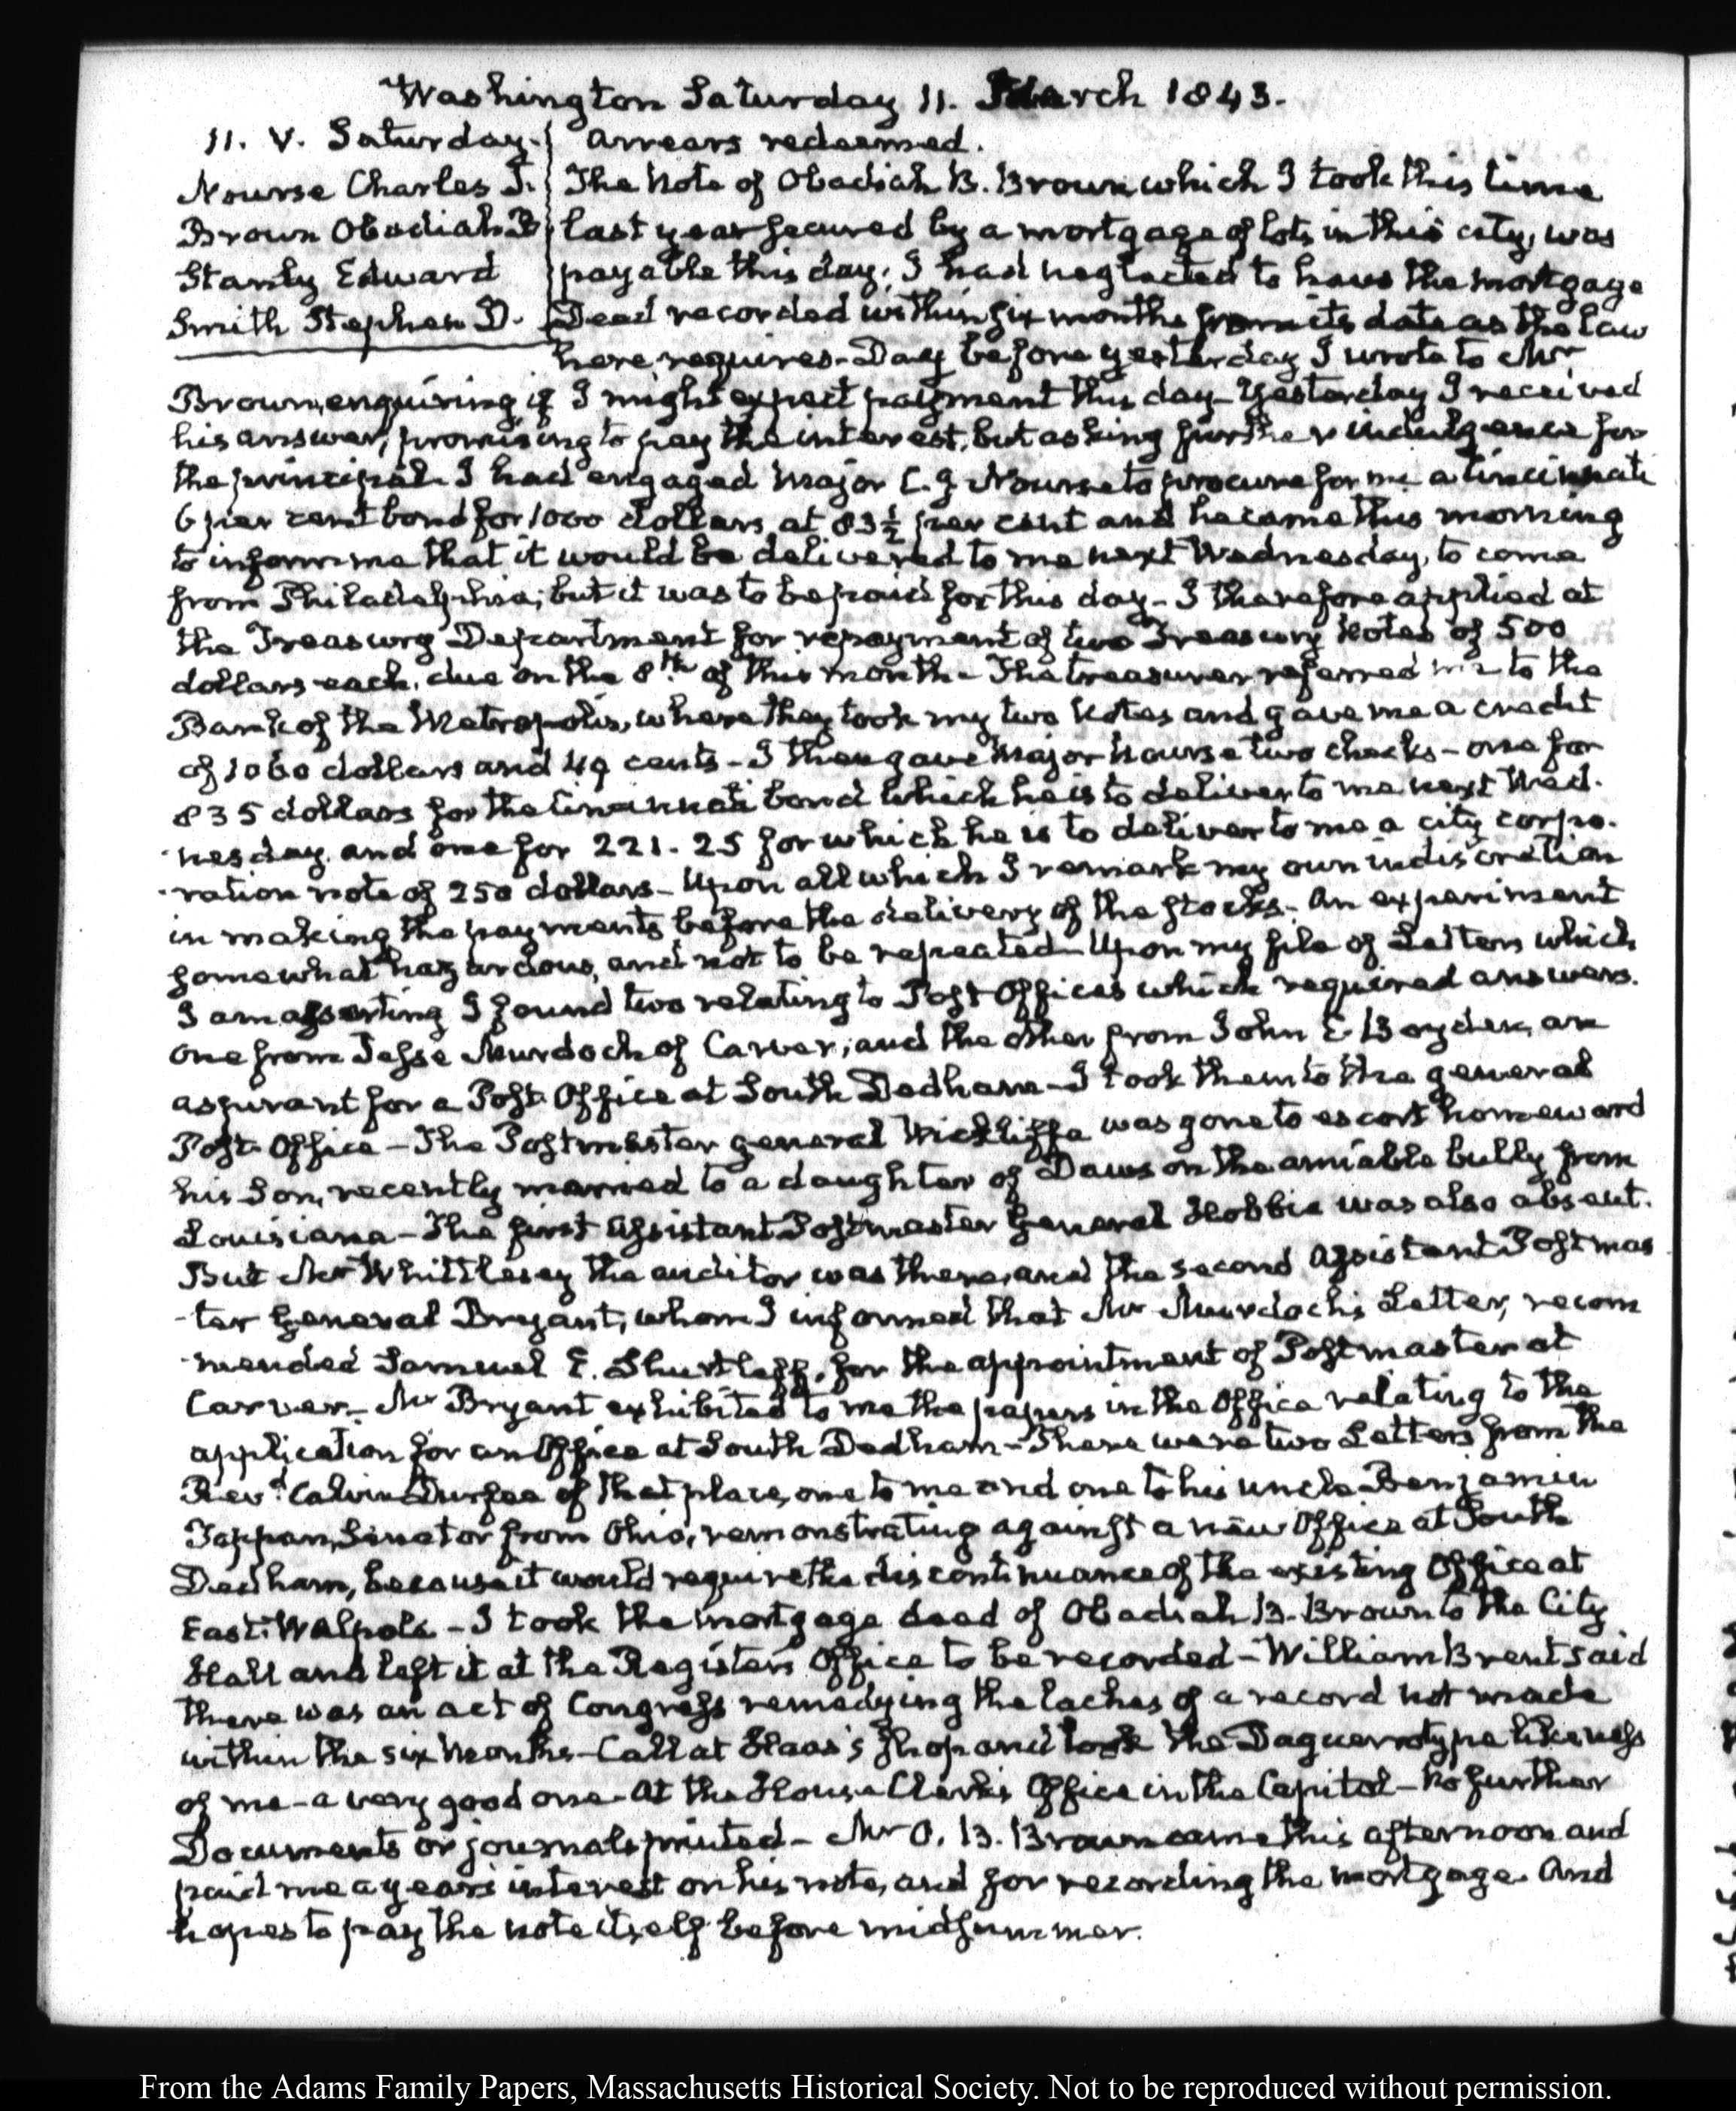 Washington Saturday 11. March 1843.
11. V. Saturday. Arrears redeemed.
Nourse Charles J. The Note of Obadiah B. Brown, which I took this time
Brown Obadiah B last year secured by a mortgage of lots in this city, was
Stanly Edward payable this day; I had neglected to have the mortgage
Smith Stephen D. Deed recorded within six months from its date as the law
here requires. Day before yesterday I wrote to Mr
Brown, enquiring if I might expect payment this day. Yesterday I received
his answer, promising to pay the interest, but asking further indulgence for
the principal. I had engaged Major C. J. Nourse to procure for me a Cincinnati
6 per cent bond for 1000 dollars, at 83½ per cent and he came this morning
to inform me that it would be delivered to me next Wednesday, to come
from Philadelphia; but it was to be paid for this day. I therefore applied at
the Treasury Department for repayment of two Treasury Notes of 500
dollars each, due on the 8th of this month. The treasurer referred me to the
Bank of the Metropolis, where they took my two Notes and gave me a credit
of 1060 dollars and 49 cents - I then gave Major Nourse two checks - one for
835 dollars for the Cincinnati bond which he is to deliver to me next Wed-
nesday, and one for 221.25 for which he is to deliver to me a city corpo-
-ration note of 250 dollars - Upon all which I remark my own indiscretion
in making the payments before the delivery of the stocks. An experiment
somewhat hazardous, and not to be repeated. Upon my file of Letters which
I am assorting I found two relating to Post Offices which required answers.
One from Jesse Murdoch of Carver, and the other from John E Boyden, an
aspirant for a Post-Office at South Dedham - I took them to the general
Post-Office - The Postmaster general Wickliffe was gone to escort homeward
his Son, recently married to a daughter of Dawson the amiable bully from
Louisiana - The first Assistant Postmaster General Hobbie was also absent.
But Mr Whittlesey the auditor was there, and the second Assistant Postmas
-ter General Bryant, whom I informed that Mr Murdoch's Letter, recom
-mended Samuel E. Shurtleff, for the appointment of Postmaster at
Carver - Mr Bryant exhibited to me the papers in the Office relating to the
application for an Office at South Dedham - There were two Letters from the
Revd Calvin Durfee of that place, one to me and one to his uncle Benjamin
Tappan, Senator from Ohio, remonstrating against a new Office at South
Dedham, because it would require the discontinuance of the existing Office at
East-Walpole - I took the mortgage deed of Obadiah B. Brown to the City
Hall and left it at the Register's Office to be recorded - William Brent said
there was an act of Congress remedying the laches of a record not made
within the six months - Call at Haas's shop and took the Daguerrotype likeness
of me - a very good one - At the House Clerk's Office in the Capitol - No further
Documents or journals printed - Mr O. B. Brown came this afternoon and
paid me a year's interest on his note, and for recording the mortgage. And
hopes to pay the note itself before midsummer.
From the Adams Family Papers, Massachusetts Historical Society. Not to be reproduced without permission.